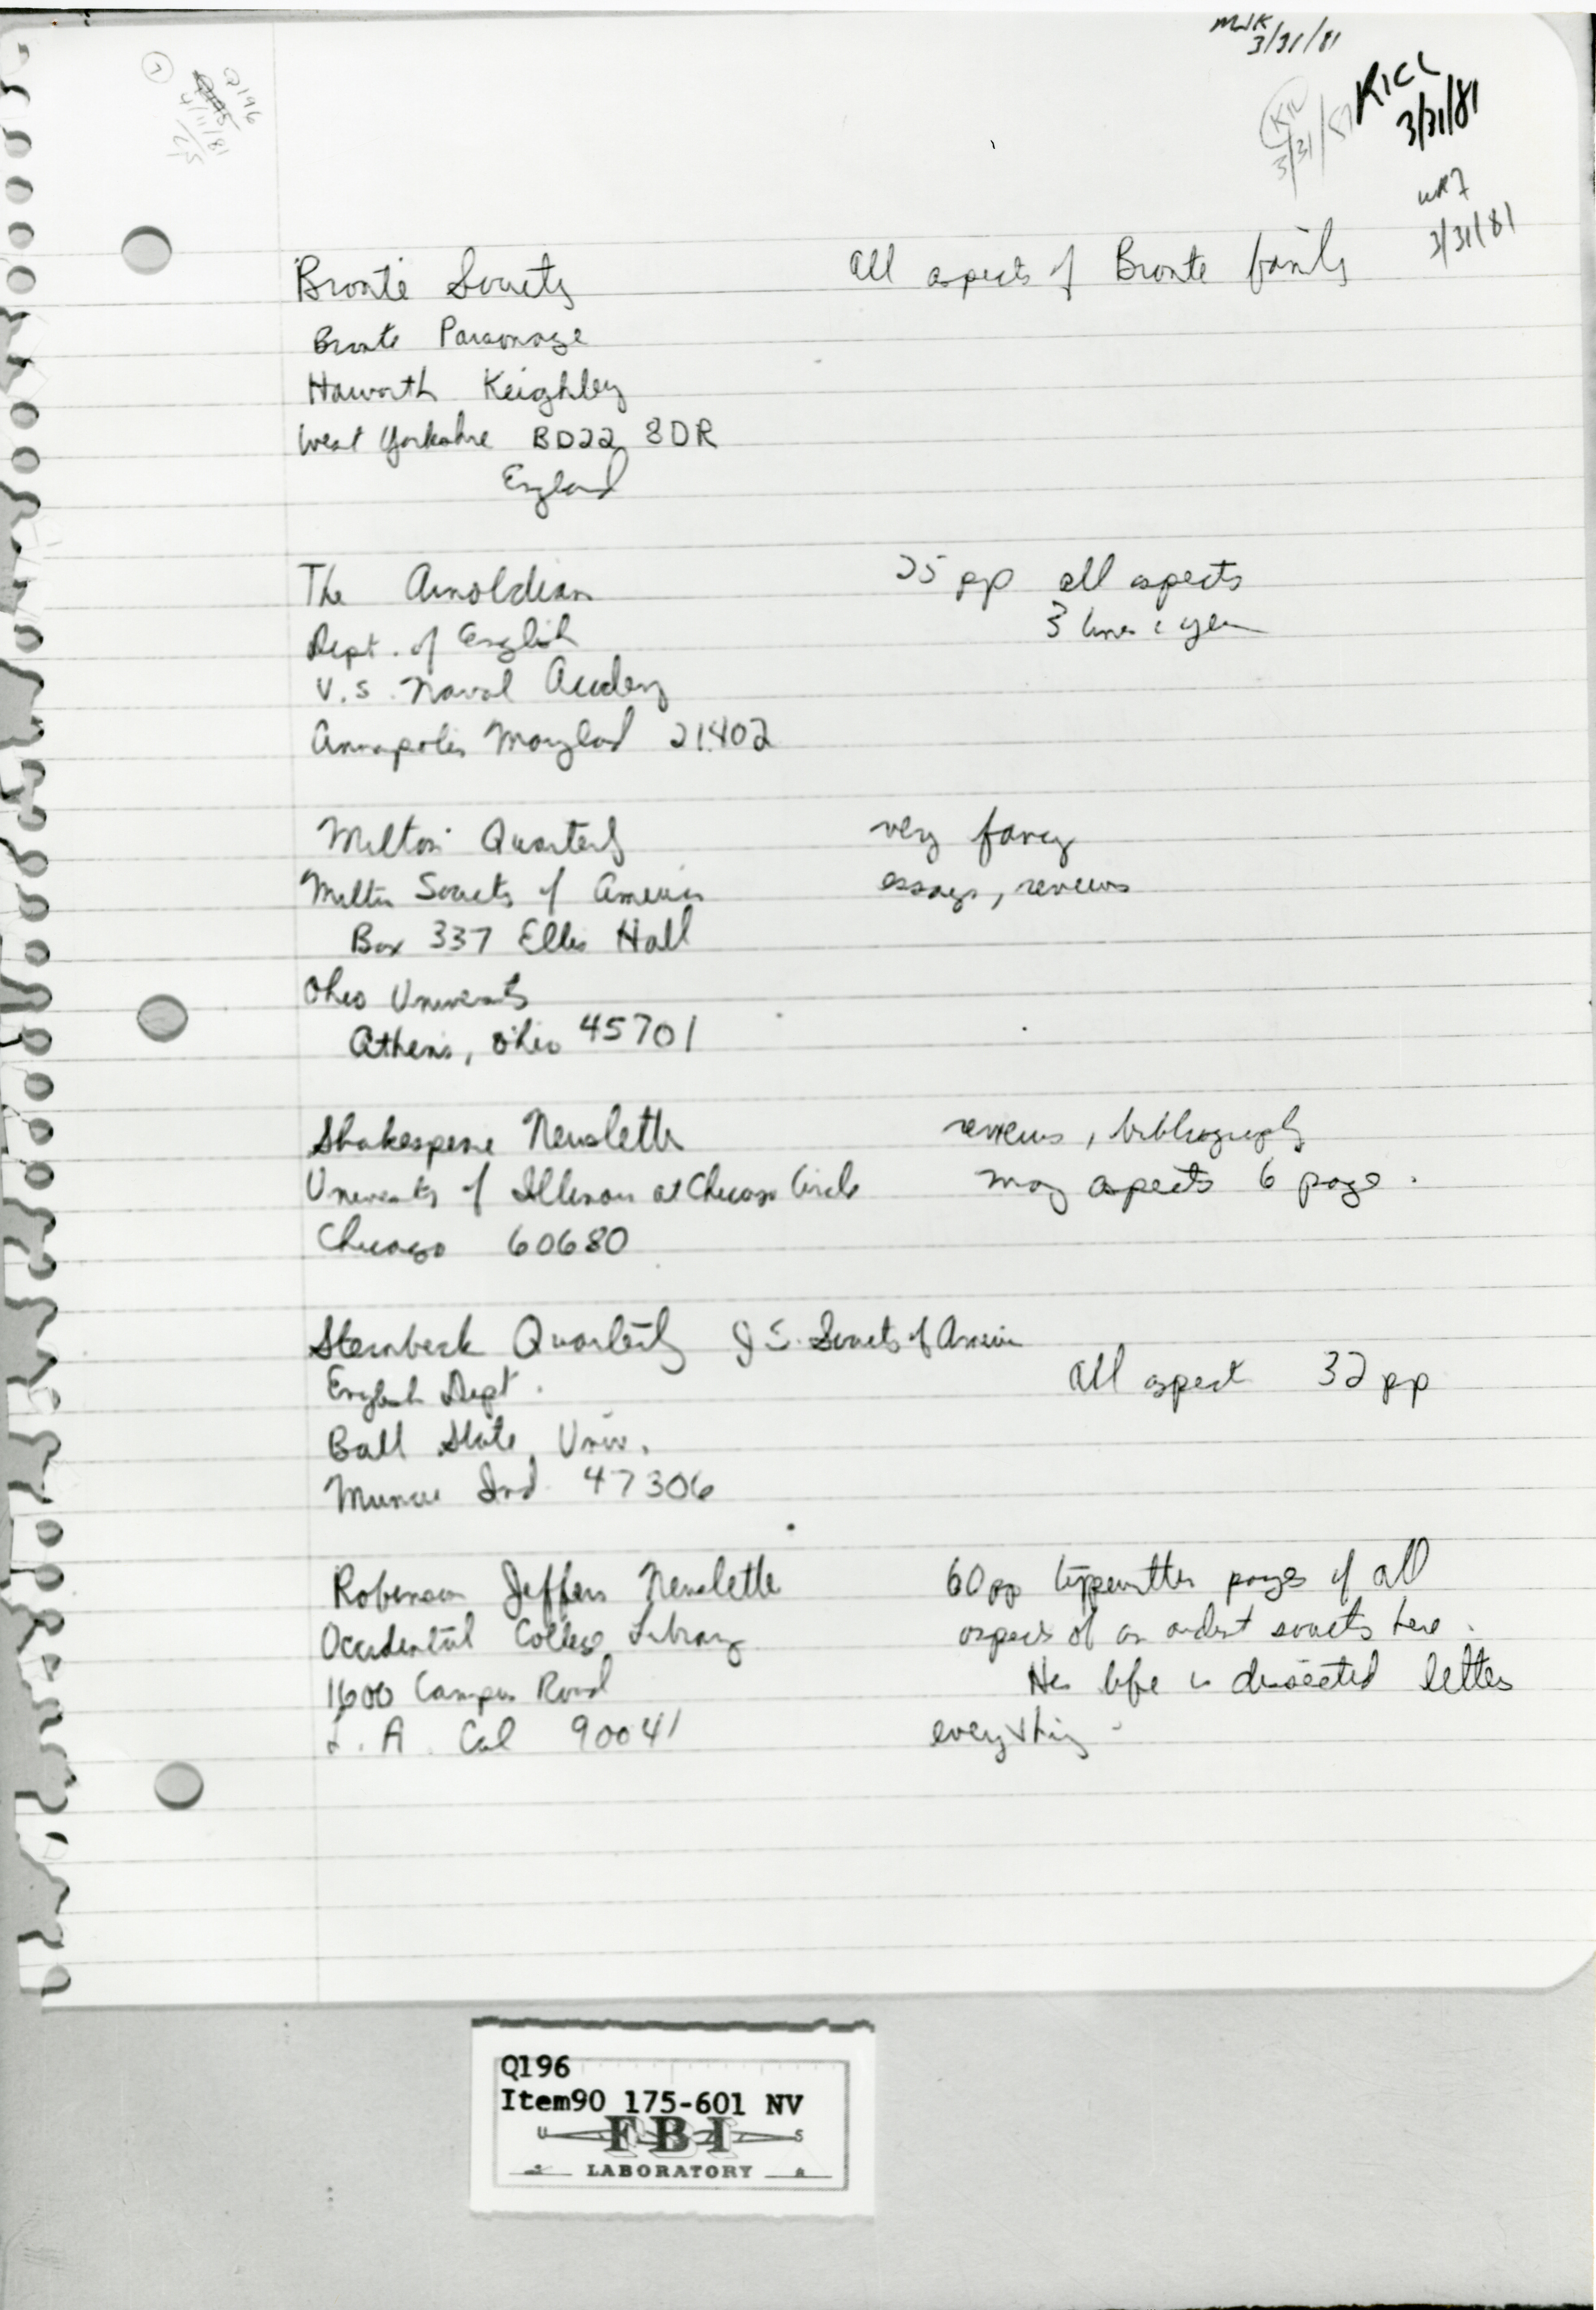 MJK
3/31/81
KICC
3/31/81
3/31/81
WR7
3/31/81
1
Q196
4/11/81
Bronte Society All aspects of Bronte family
Bronte Parsonage
Haworth Keighley
West Yorkshire BD22 8DR
England
The Arnoldian 25 pp all aspects
Dept. of English 3 times a year
U.S. Naval Academy
Annapolis Maryland 21402
Milton Quarterly very fancy
Milton Society of America essays, reviews
Box 337 Ellis Hall
Ohio University
Athens, Ohio 45701
Shakespeare Newsletter reviews, bibliography
University of Illinois at Chicago Circle many aspects 6 page.
Chicago 60680
Steinbeck Quarterly J S. Society of America
English Dept. All aspect 32 pp
Ball State Univ.
Muncie Ind. 47306
Robinson Jeffers Newsletter 60 pp typewritten pages of all
Occidental College Library aspects of an ardent society here.
1600 Campus Road His life is dissected letters
L.A. Cal 90041 everything
Q196
Item90 175-601 NV
U FBI S
LABORATORY